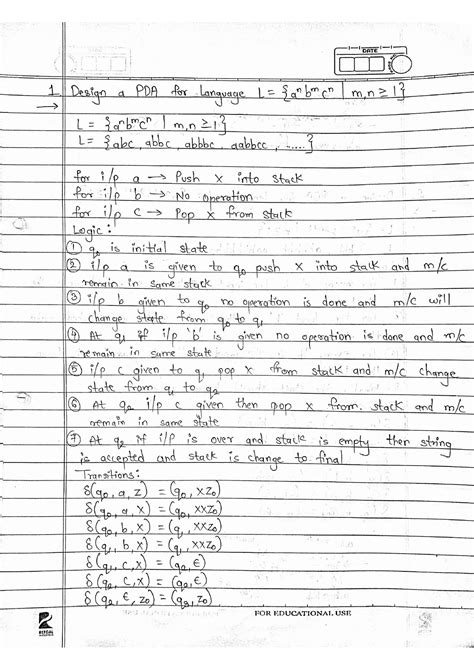 DATE
1 Design a PDA for language L = {aⁿbᵐcⁿ | m,n ≥ 1}
→
L = {aⁿbᵐcⁿ | m,n ≥ 1}
L = {abc, abbc, abbbc, aabbcc, ......}
for i/p a → Push X into stack
for i/p b → No operation
for i/p c → Pop X from stack
Logic :
① q₀ is initial state
② i/p a is given to q₀ push X into stack and m/c
remain in same stack
③ i/p b given to q₀ no operation is done and m/c will
change state from q₀ to q₁
④ At q₁ if i/p 'b' is given no operation is done and m/c
remain in same state
⑤ i/p c given to q₁ pop X from stack and m/c change
state from q₁ to q₂
⑥ At q₂ i/p c given then pop X from stack and m/c
remain in same state
⑦ At q₂ if i/p is over and stack is empty then string
is accepted and stack is change to final
Transitions :
δ(q₀, a, z) = (q₀, XZ₀)
δ(q₀, a, X) = (q₀, XXZ₀)
δ(q₀, b, X) = (q₁, XXZ₀)
δ(q₁, b, X) = (q₁, XXZ₀)
δ(q₁, c, X) = (q₂, ϵ)
δ(q₂, c, X) = (q₂, ϵ)
δ(q₂, ϵ, Z₀) = (q₃, Z₀)
FOR EDUCATIONAL USE